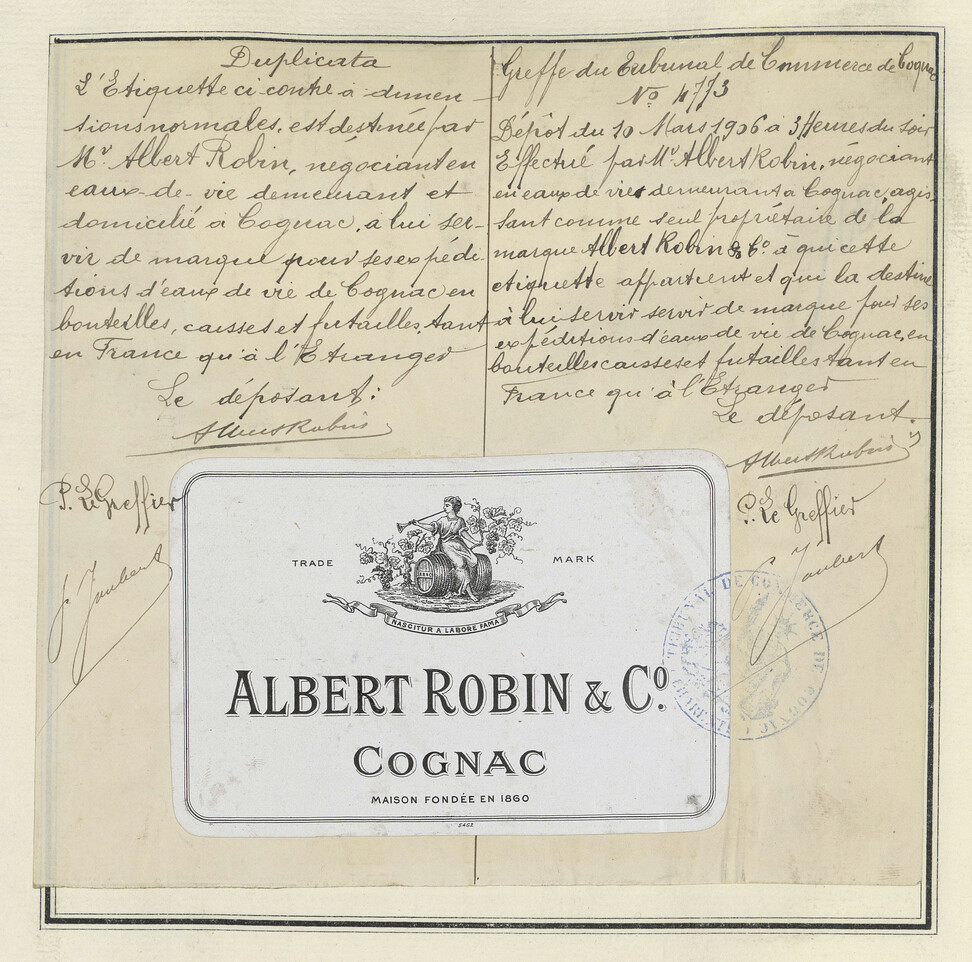 Duplicata
L'Etiquette ci-contre à dimen-
sions normales, est destinée par
Mr Albert Robin, négociant en
eaux-de-vie demeurant et
domicilié à Cognac, à lui ser-
vir de marque pour ses expédi-
tions d'eaux de vie de Cognac en
bouteilles, caisses et futailles, tant
en France qu'à l'Etranger
Le déposant:
Albert Robin
P. Le Greffier
Joubert
Greffe du Tribunal de Commerce de Cognac
No 4773
Dépôt du 10 Mars 1906 à 3 Heures du soir
Effectué par Mr Albert Robin, négociant
en eaux de vies demeurant à Cognac, agis-
sant comme seul propriétaire de la
marque Albert Robin & Co. à qui cette
etiquette appartient et qui la destine
à lui servir servir de marque pour ses
expéditions d'eaux de vie de Cognac, en
bouteilles caisses et futailles tant en
France qu'à l'Etranger
Le déposant.
Albert Robin
P. Le Greffier
Joubert
TRADE MARK
NASCITUR A LABORE FAMA
ALBERT ROBIN & Co.
COGNAC
MAISON FONDÉE EN 1860
5463
TRIBUNAL DE COMMERCE DE COGNAC